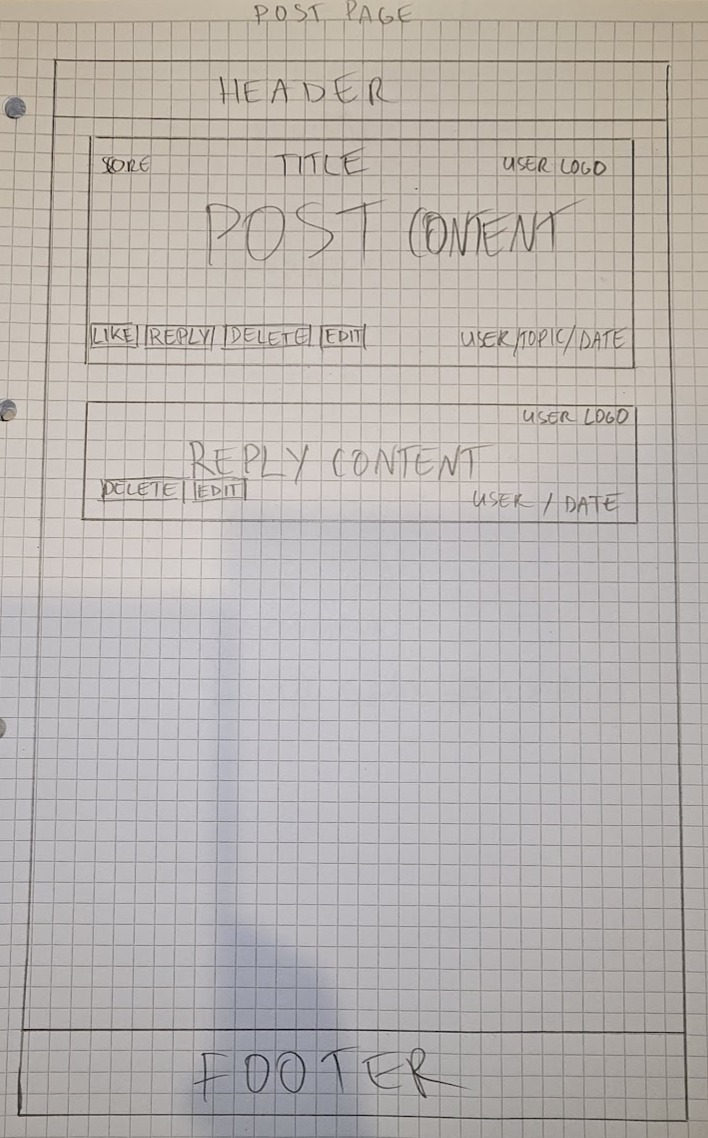 POST PAGE
HEADER
SORE TITLE USER LOGO
POST CONTENT
LIKE REPLY DELETE EDIT USER/TOPIC/DATE
USER LOGO
REPLY CONTENT
DELETE EDIT USER / DATE
FOOTER